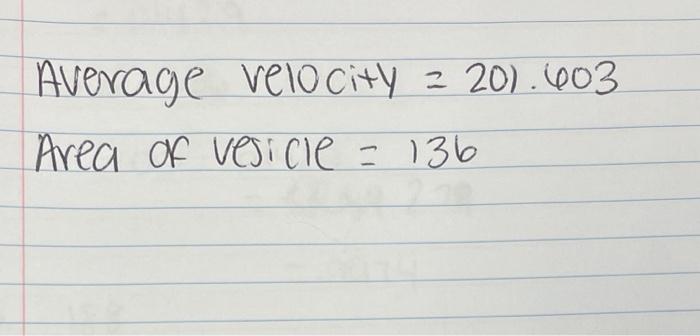 Average velocity = 201.603
Area of vesicle = 136